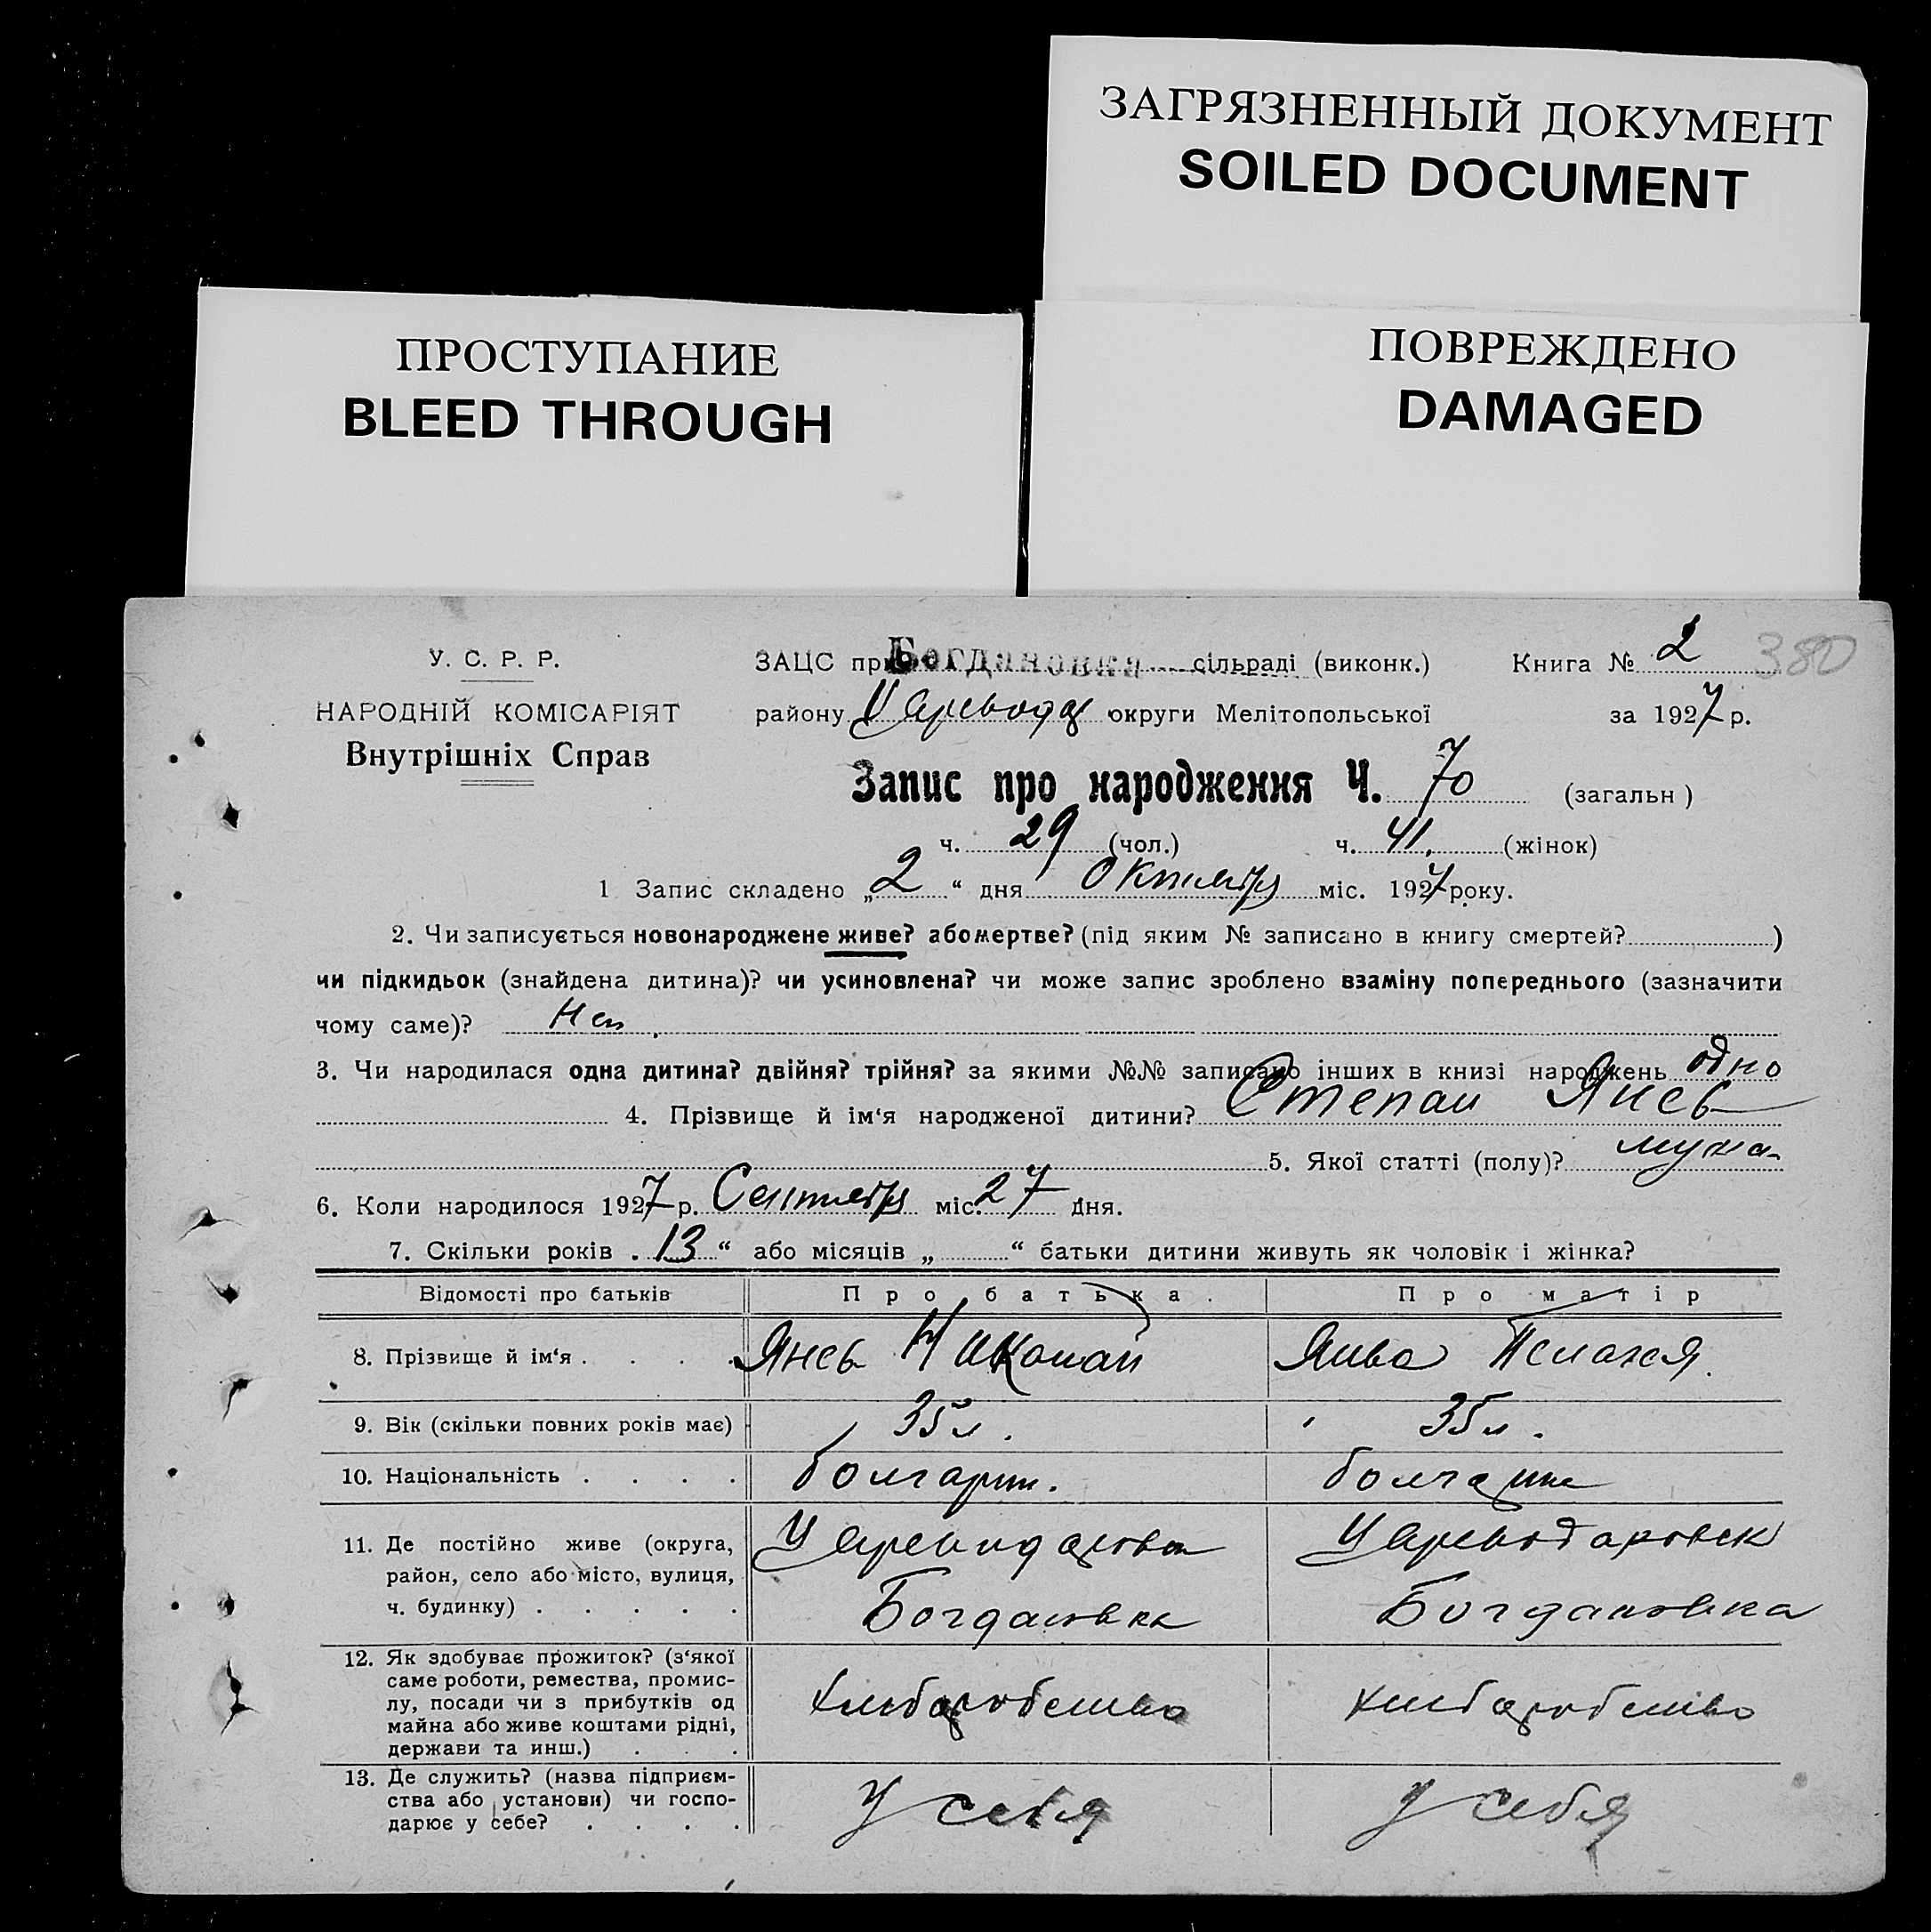 ЗАГРЯЗНЕННЫЙ ДОКУМЕНТ
SOILED DOCUMENT
ПРОСТУПАНИЕ
BLEED THROUGH
ПОВРЕЖДЕНО
DAMAGED
У. С. Р. Р.
НАРОДНІЙ КОМІСАРІЯТ
Внутрішніх Справ
ЗАЦС при Богдановка сільраді (виконк.) Книга № 2 380
району Царевода округи Мелітопольської за 1927 р.
Запис про народження Ч. 70 (загальн)
ч. 29 (чол.) ч. 41. (жінок)
1 Запис складено „2“ дня Октября міс. 1927 року.
2. Чи записується новонароджене живе? або мертве? (під яким № записано в книгу смертей? )
чи підкидьок (знайдена дитина)? чи усиновлена? чи може запис зроблено взаміну попереднього (зазначити
чому саме)? Нет.
3. Чи народилася одна дитина? двійня? трійня? за якими №№ записано інших в книзі народжень одно
4. Прізвище й ім‘я народженої дитини? Степан Янев
5. Якої статті (полу)?
6. Коли народилося 1927 р. Сентября міс. 27 дня.
7. Скільки років „13“ або місяців „ “ батьки дитини живуть як чоловік і жінка?
Відомості про батьків Про батька. Про матір
8. Прізвище й ім‘я . . . . Янев Николай Янева Пелагея.
9. Вік (скільки повних років має) 35 л. 35 л.
10. Національність . . . . болгарин. болгарка
11. Де постійно живе (округа,
район, село або місто, вулиця,
ч. будинку) . . . . .
Цареводаровск
Богдановка
Цареводаровск
Богдановка
12. Як здобуває прожиток? (з‘якої
саме роботи, ремества, промис-
лу, посади чи з прибутків од
майна або живе коштами рідні,
держави та инш.) . . .
хлиборобство
хлиборобство
13. Де служить? (назва підприєм-
ства або установи) чи госпо-
дарює у себе? . . . .
У себя
У себя